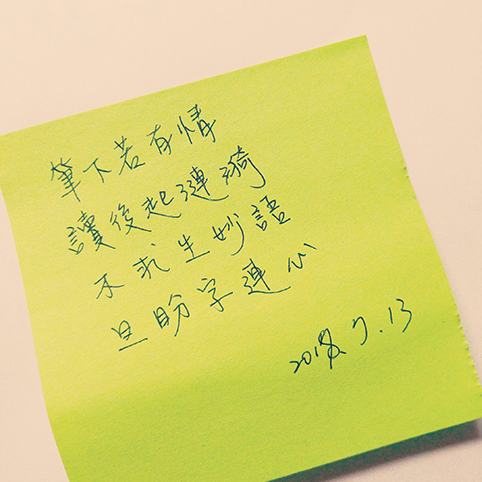 筆下若有情
讀後起漣漪
不求生妙語
旦盼字連心
2018.7.13